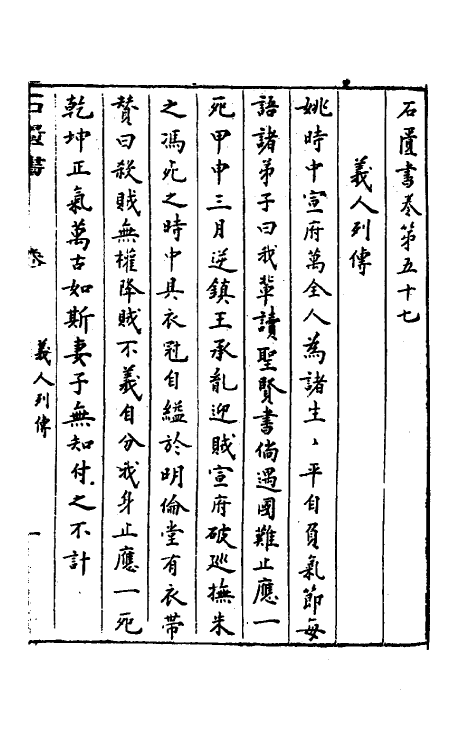 石匱書卷第五十七
義人列傳
姚時中宣府萬全人為諸生、平自負氣節每
語諸弟子曰我輩讀聖賢書倘遇國難止應一
死甲申三月逆鎮王承亂迎賊宣府破巡撫朱
之馮死之時中具衣冠自縊於明倫堂有衣帶
贊曰殺賊無權降賊不義自分我身止應一死
乾坤正氣萬古如斯妻子無知付之不計
石匱書
卷
義人列傳
一